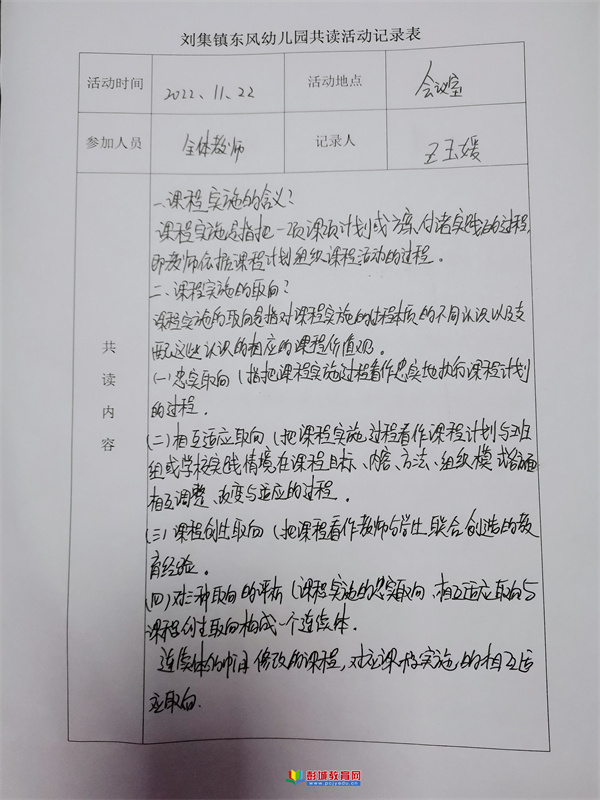 刘集镇东风幼儿园共读活动记录表
活动时间 2022、11、22 活动地点 会议室
参加人员 全体教师 记录人 王玉媛
共读内容
一.课程实施的含义？
课程实施是指把一项课项计划或方案付诸实践的过程,
即教师依据课程计划组织课程活动的过程。
二.课程实施的取向？
课程实施的取向是指对课程实施的过程本质的不同认识以及支
配这些认识的相应的课程价值观。
(一)忠实取向(指把课程实施过程看作忠实地执行课程计划
的过程.
(二)相互适应取向(把课程实施过程看作课程计划与班
组或学校实践情境在课程目标、内容、方法、组织模式各方面
相互调整、改变与适应的过程.
(三)课程创生取向(把课程看作教师与学生联合创造的教
育经验。
(四)对三种取向的评析(课程实施的忠实取向、相互适应取向与
课程创生取向构成一个连续体.
连续体的中间 修改的课程,对应课程实施的相互适
应取向.
彭城教育网
www.pcjyedu.cn